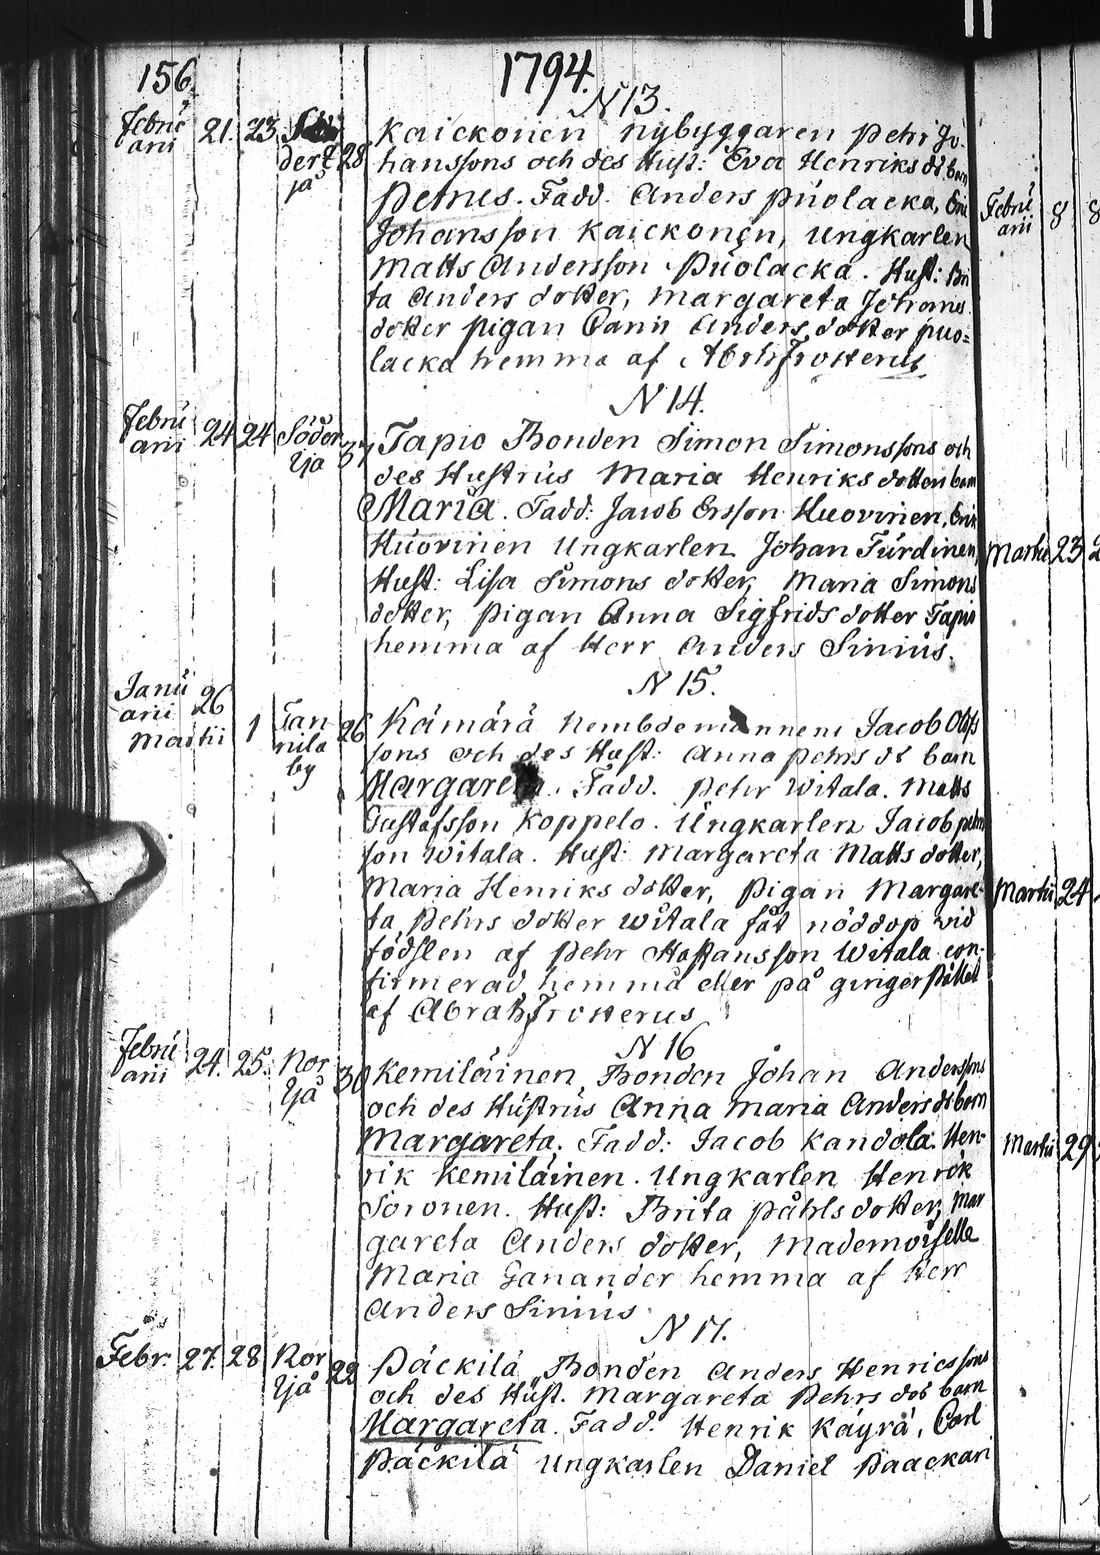 156. 1794.
N 13.
Februarii 21. 23. derljå 28 Kaickonen nybyggaren Pehr Jo-
hanssons och des Hust: Eva Henriks dr. barn
Petrus. Fadd. Anders Puolacka, Eric
Johansson Kaickonen, Ungkarlen
Matts Andersson Puolacka. Hust: Bri
ta Anders dotter, Margareta Johans
dotter pigan Carin Anders dotter Puo=
lacka hemma af Abrh Frosterus
N 14.
Februarii 24 24 Söderljå 37 Tapio Bonden Simon Simonssons och
des Hustrus Maria Henriks dotters barn
Maria. Fadd: Jacob Ersson Huovinen, Eric
Huovinen Ungkarlen Johan Turdinen,
Hust: Lisa Simons dotter, Maria Simons
dotter, pigan Anna Sigfrids dotter Tapio
hemma af Herr Anders Simius.
N 15.
Januarii 26 Martii 1 Tannila by 26 Kämärä Nembdemannens Jacob Olofs
sons och des Hust: Anna Pehrs dr barn
Margareta. Fadd. Pehr Witala. Matts
Gustafsson Koppelo. Ungkarlen Jacob Pehrs
son Witala. Hust: Margareta Matts dotter,
Maria Henriks dotter, pigan Margare-
ta Pehrs dotter Witala fåt nöddop vid
födslen af Pehr Staffansson Witala con-
firmerad hemma eller på giriger stället
af Abrah Frosterus
N 16
Februarii 24. 25. Norljå 30 Kemiläinen, Bonden Johan Anderssons
och des Hustrus Anna Maria Anders dr barn
Margareta. Fadd: Jacob Kandola. Hen-
rik Kemiläinen. Ungkarlen Henrik
Soronen. Hust: Brita Påhls dotter, Mar
gareta Anders dotter, Mademoiselle
Maria Ganander hemma af Herr
Anders Simius.
N 17.
Febr. 27. 28 Norljå 22 Päckilä Bonden Anders Henricssons
och des Hust. Margareta Pehrs dor barn
Margareta. Fadd: Henrik Käyrä, Carl
Päckilä Ungkarlen Daniel Paackari
Februarii 8 8
Martii 23
Martii 24
Martii 29